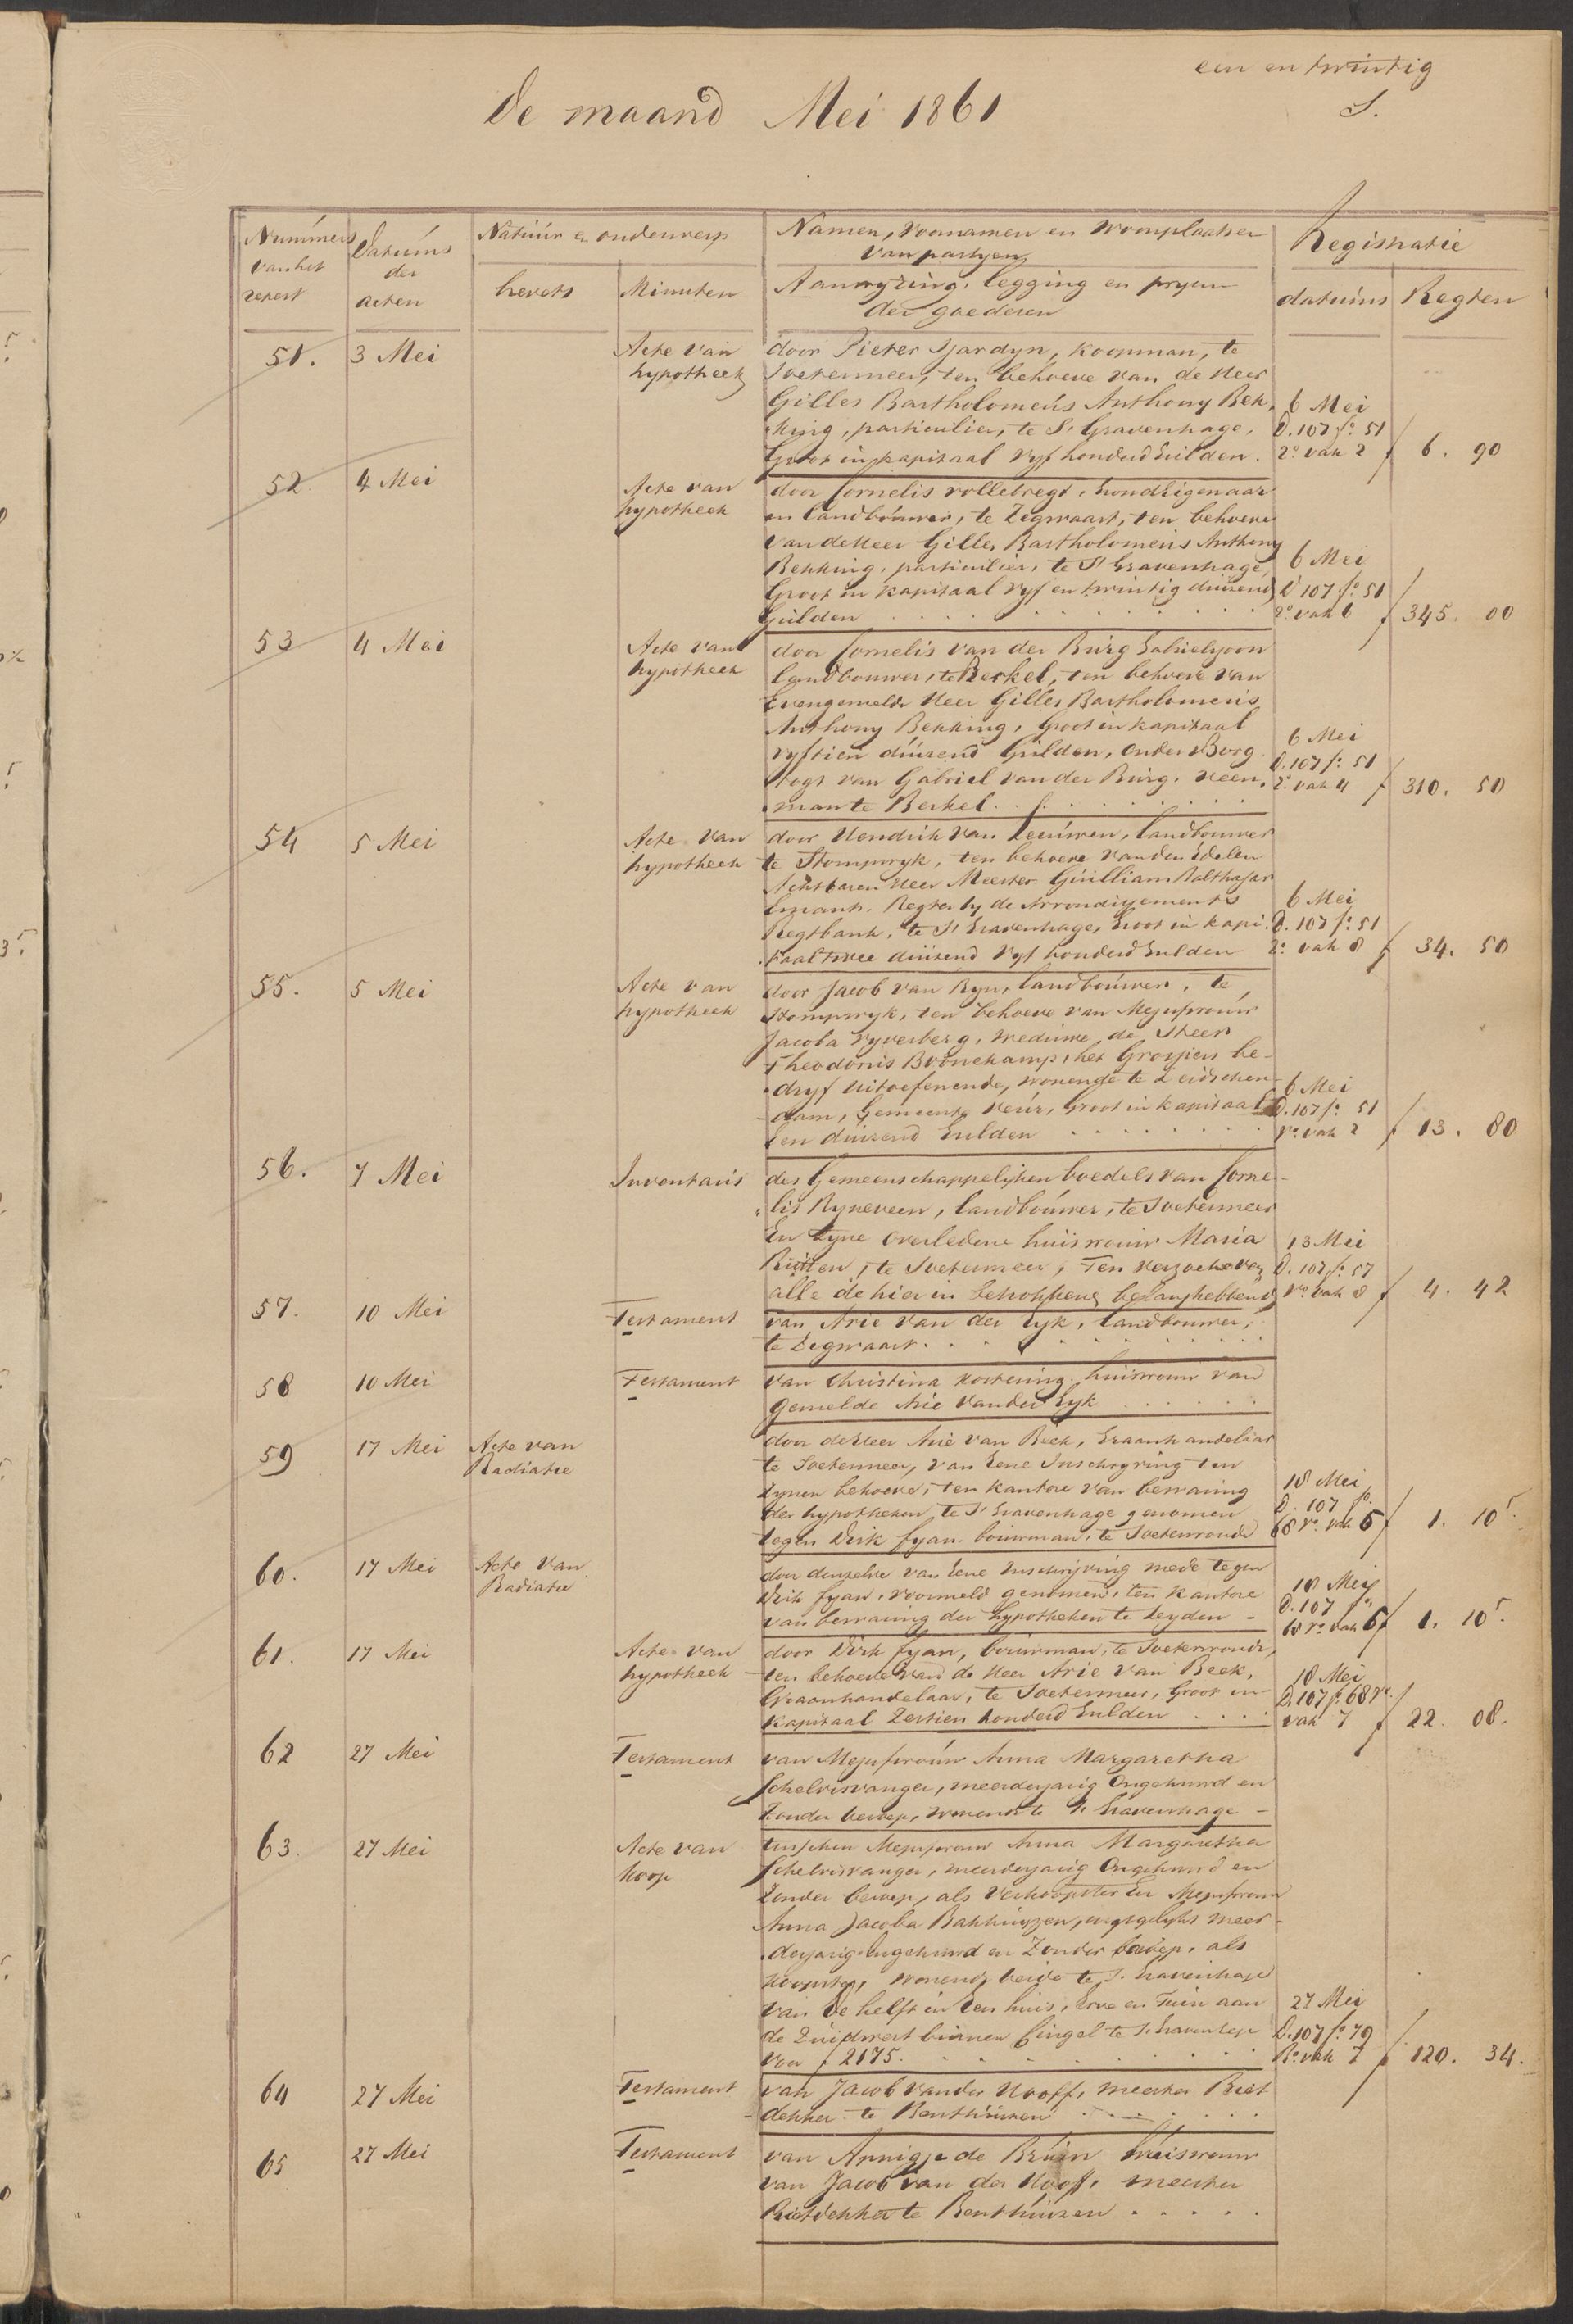 een en twintig
S.
de maand Mei 1861
Nummers van het repert
Datums der acten
Natuur en onderwerp
brevets
Minuten
Namen, voornamen en woonplaatsen
van partyen
Aanwyzing, legging en pryzen
der goederen
Registratie
datums
Regten
51. 3 Mei Acte van door Pieter Tjardyn, koopman, te
hypotheek Soetermeer, ten behoeve van de Heer
Gilles Bartholomeus Anthony Bek 6 Mei
king, particulier, te S' Gravenhage, D. 107 fo. 51
Groot in kapitaal Vyf honderd Gulden. 2o. vak 2 f 6. 90
52 4 Mei Acte van door Cornelis vollebregt, Grondeigenaar
hypotheek en landbouwer, te Zegwaart, ten behoeve
van de Heer Gilles Bartholomeus Anthony
Bekking, particulier, te S' Gravenhage, 6 Mei
Groot in kapitaal vyf en twintig duizend D 107 fo. 51
Gulden 2o. vak 6 f 345. 00
53 4 Mei Acte van door Cornelis van der Burg Gabrielzoon
hypotheek landbouwer, te Berkel, ten behoeve van
Evengemelde Heer Gilles Bartholomeus
Anthony Bekking, Groot in kapitaal 6 Mei
vyftien duizend Gulden, onder Borg D. 107 fo. 51
togt van Gabriel van der Burg, veen 2o. vak 4 f 310. 50
man te Berkel.
54 5 Mei Acte van door Hendrik van Leeuwen, landbouwer
hypotheek te Stompwyk, ten behoeve van den Edelen
Achtbaren Heer Meester Guilliam Balthasar
Emants. Regter by de Arrondissements 6 Mei
Regtbank, te S' Gravenhage, Groot in kapi. D. 107 fo. 51
taal twee duizend Vyf honderd Gulden 2o. vak 8 f 34. 50
55. 5 Mei Acte van door Jacob van Ryn, landbouwer, te
hypotheek Stompwyk, ten behoeve van Mejufvrouw
Jacoba Vyverberg, weduwe de Heer
Theodorus Boonekamp, het Grospiers be-
dryf uitoefenende, wonende te Leidschen- 6 Mei
dam, Gemeente Veur, Groot in kapitaal D. 107 fo. 51
Een duizend Gulden vo. vak 2 f 13. 80
56. 7 Mei Inventaris des Gemeenschappelijken boedels van Corne-
lis Ryneveen, landbouwer, te Soetermeer
En Zyne overledene huisvrouw Maria 13 Mei
te Soetermeer, Ten verzoeke van D. 107 fo. 57
alle de hier in betrokkene belanghebbende vo. vak 8 f 4. 42
57. 10 Mei Testament van Arie van der Eyk, landbouwer,
te Zegwaart.
58 10 Mei Testament van Christina Kortening huisvrouw van
gemelde Arie Van der Eyk
59 17 Mei Acte van door de Heer Arie van Beek, Graanhandelaar
Radiatie te Soetermeer, van Eene Inschryving ten
Zynen behoeve, ten kantore van bewaring 18 Mei
der hypotheken te S' Gravenhage genomen D. 107 fo.
tegen Dirk Fyan, bouwman, te Soeterwoude 68 vo. vak 5 f 1. 10 5.
60. 17 Mei Acte van door denzelve van Eene Inschrijving mede tegen
Radiatie Dirk Fyan, voormeld genomen, ten kantore 18 Mei
van bewaring der hypotheken te Leyden - D. 107 fo.
68 vo. vak 6 f 1. 10 5.
61. 17 Mei Acte van door Dirk Fyan, bouwman, te Soeterwoude,
hypotheek ten behoeve van de Heer Arie van Beek, 18 Mei
Graanhandelaar, te Soetermeer, Groot in D. 107 fo 68 vo.
kapitaal Zestien honderd Gulden vak 7 f 22. 08.
62 27 Mei Testament van Mejufvrouw Anna Margaretha
Schelvisvanger, meerderjarig Ongehuwd en
Zonder beroep, wonende te S' Gravenhage -
63. 27 Mei Acte van tusschen Mejufvrouw Anna Margaretha
koop Schelvisvanger, meerderjarig Ongehuwd en
Zonder beroep, als Verkoopster En Mejufvrouw
Anna Jacoba Bakhuyzen, insgelyks meer-
derjarig Ongehuwd en Zonder beroep, als
koopster, wonende beide te S. Gravenhage
Van De helft in Een huis, Erve en Tuin aan 27 Mei
de Zuidwest binnen Cingel te S. Gravenhage D. 107 fo 79
voor f 2175. Ro. vak 7 f 120. 34.
64 27 Mei Testament van Jacob van der Hooff, meester Riet
dekker te Benthuizen
65 27 Mei Testament van Annigje de Bruin huisvrouw
van Jacob van der Hooff, meester
Rietdekker te Benthuizen